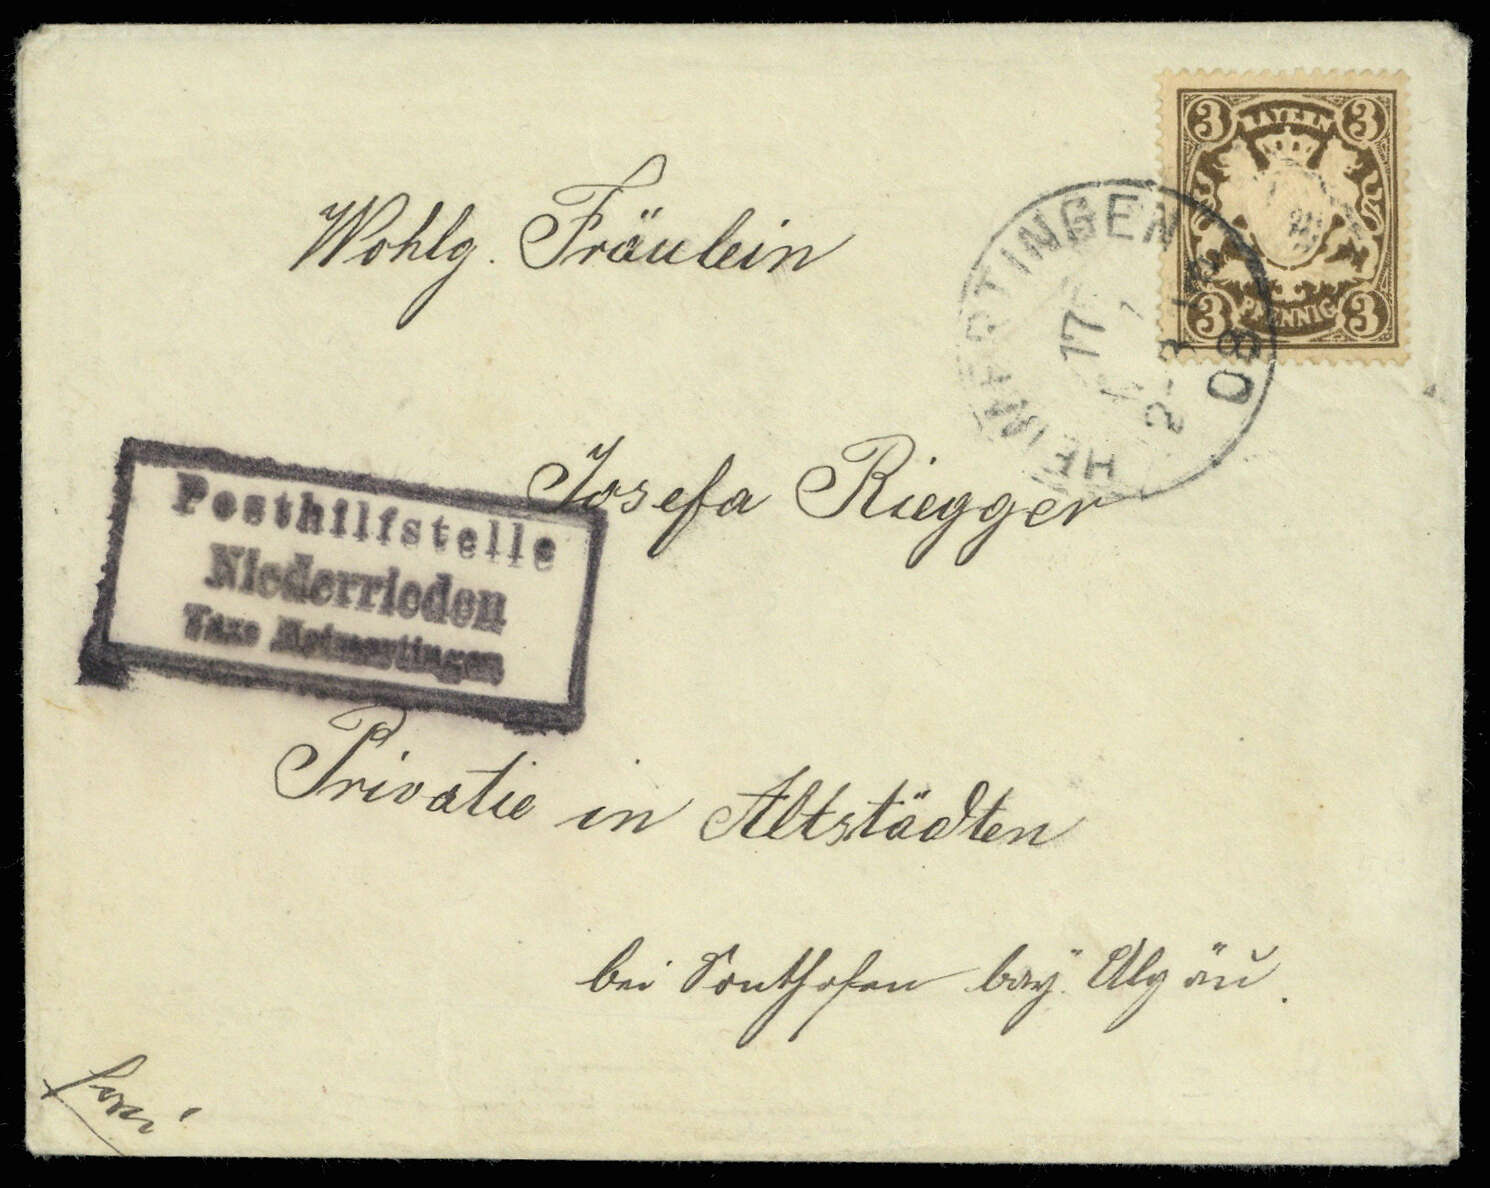 3 BAYERN 3
3 PFENNIG 3
HEIMERTINGEN
17
2-3
08
Wohlg. Fräulein
Josefa Riegger
Posthilfstelle
Niederrieden
Taxe Heimertingen
Privatie in Altstädten
bei Sonthofen bay. Algäu.